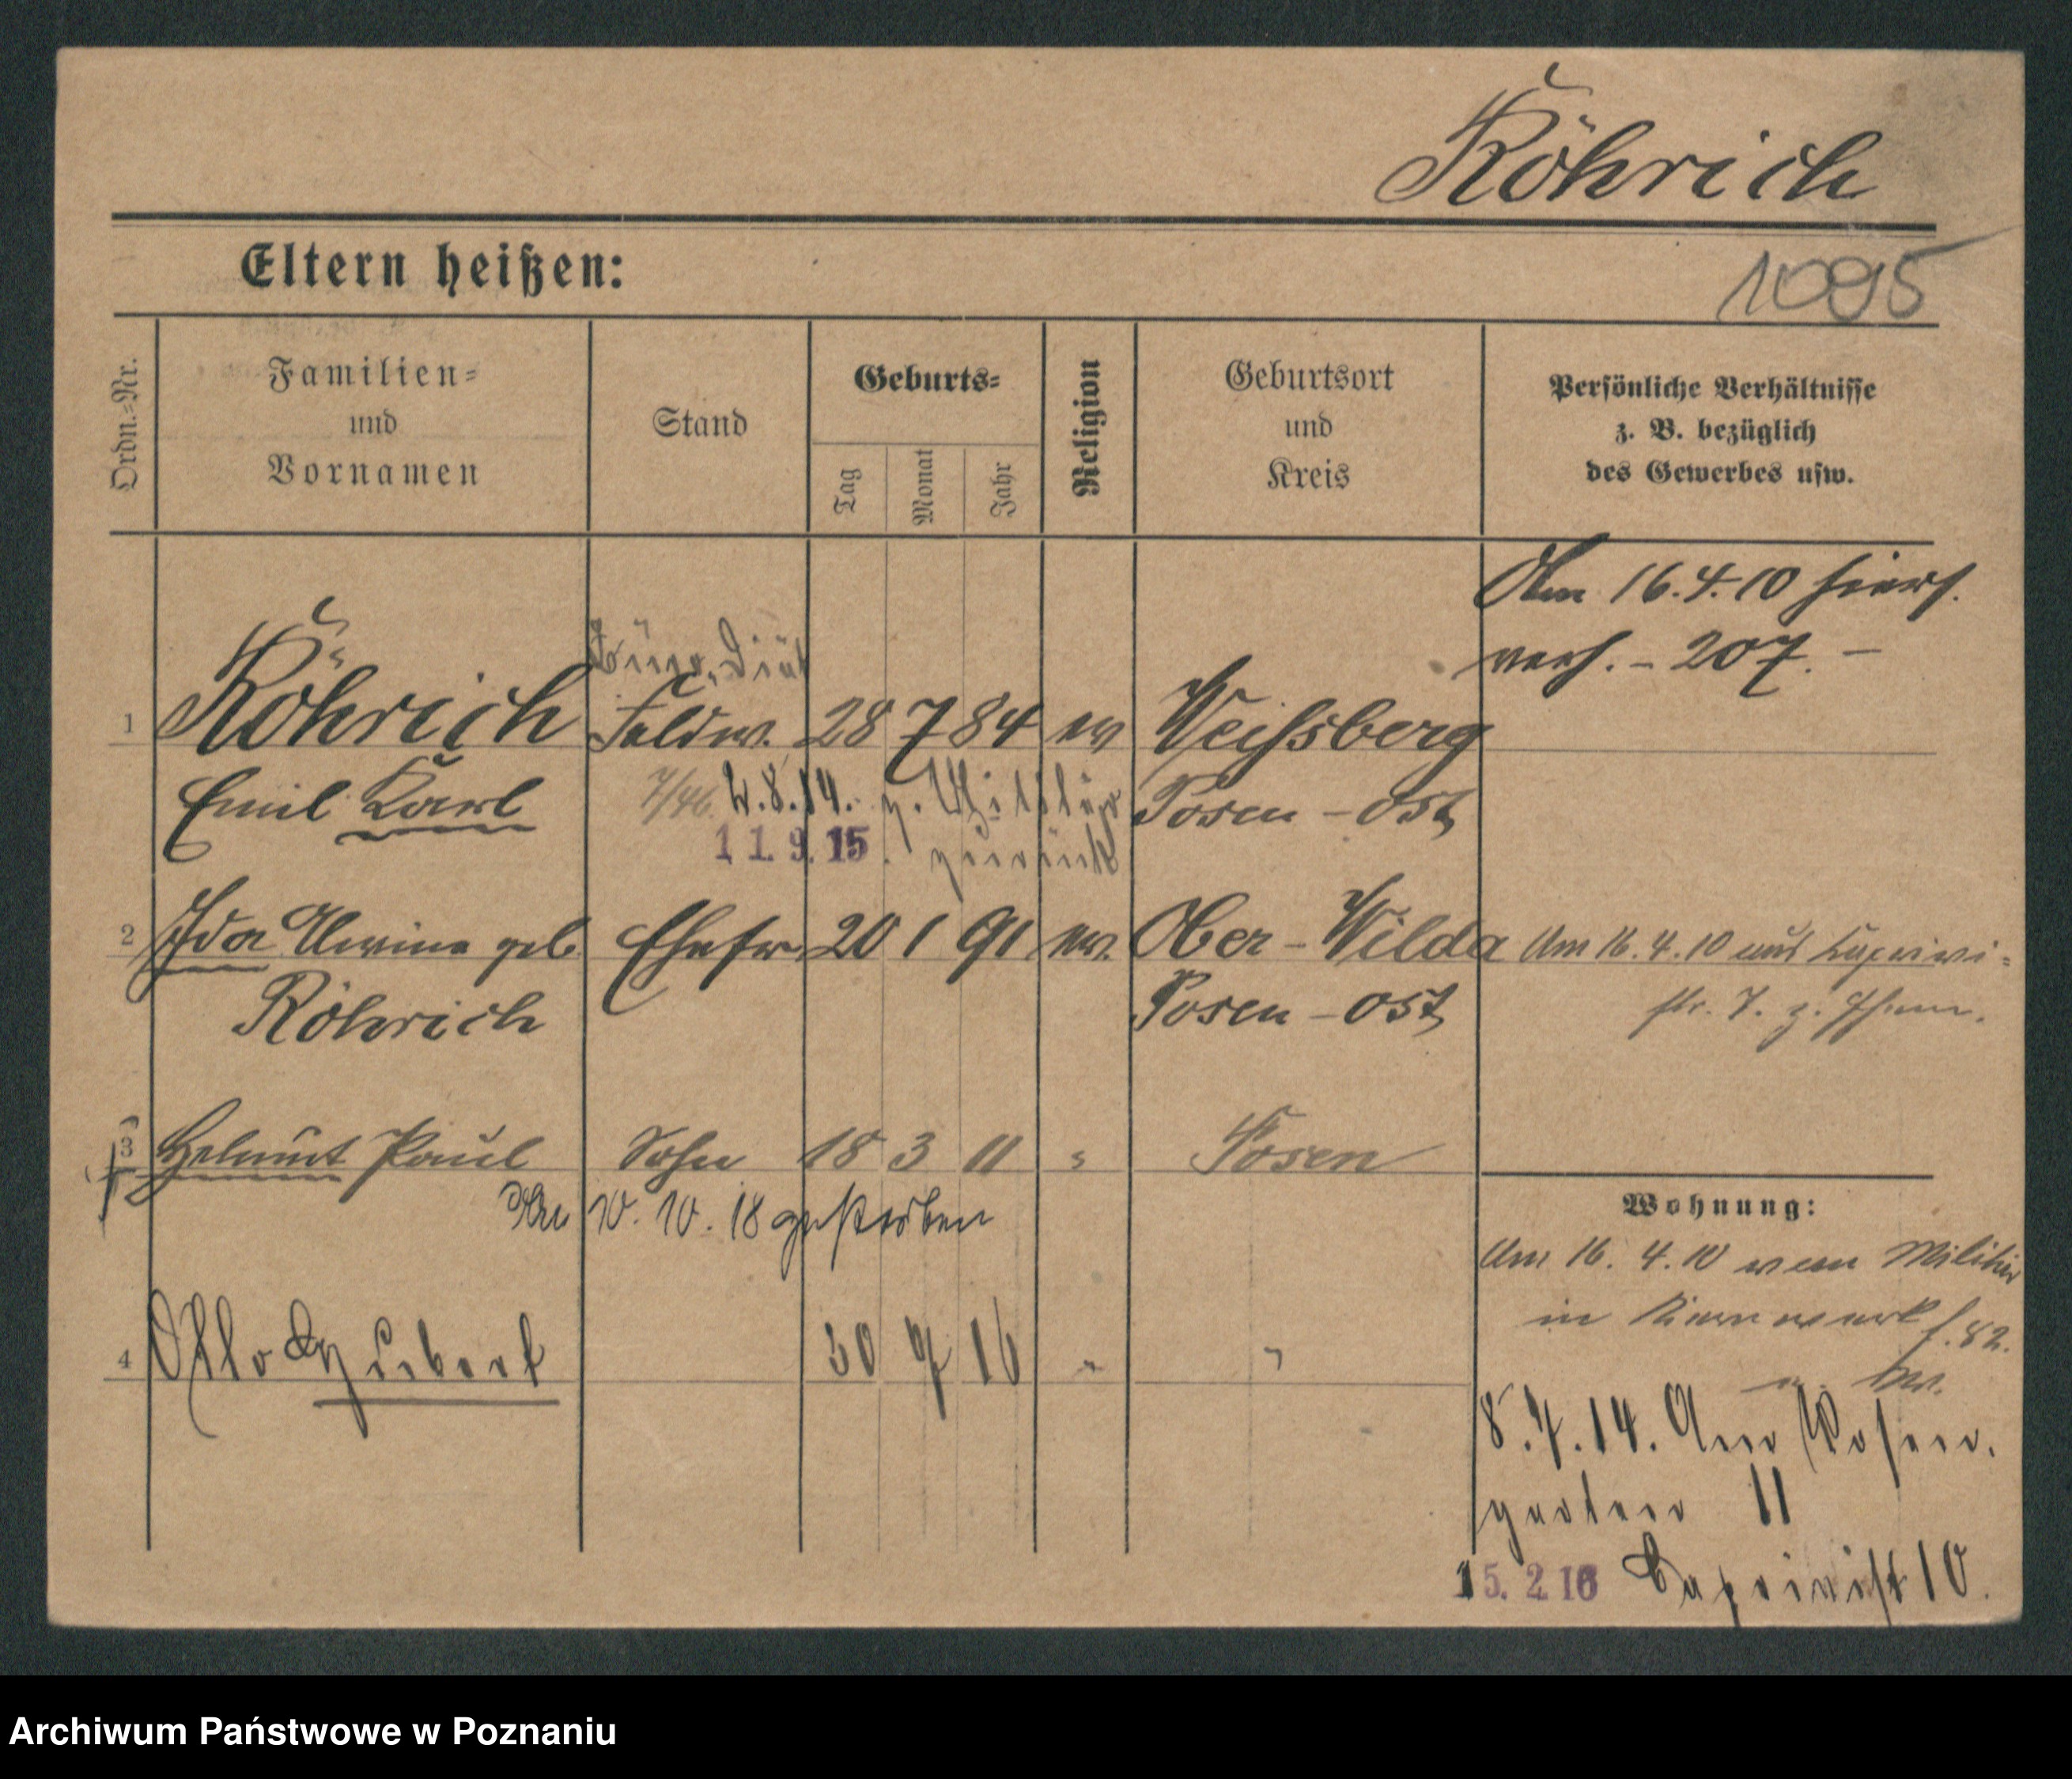 Röhrich
Eltern heißen:
1095
Ordn.-Nr.
Familien-
und
Vornamen
Stand
Geburts-
Tag
Monat
Jahr
Religion
Geburtsort
und
Kreis
Persönliche Verhältnisse
z. B. bezüglich
des Gewerbes usw.
Am 16.4.10 hiers.
verh. - 207. -
Büro, Diät
1 Röhrich Feldw. 28 7 84 ev Weissberg
Emil Karl 2.8.14. z. Militär Posen - Ost
11.9.15. zurück
2 Ida geb. Ehefr. 20 1 91 ev. Ober - Wilda Am 16.4.10 aus Caprivi-
Röhrich Posen - Ost str. 7. z. Ehem.
3 Helmut Paul Sohn 18 3 11 " Posen
Am 10. 10. 18 gestorben
Wohnung:
Am 16. 4. 10 vom Militär
in Kernwerk
4 Otto 30 7 16 " "
8.7.14. Am Rosen-
garten 11
15.2.16 Caprivistr 10.
Archiwum Państwowe w Poznaniu